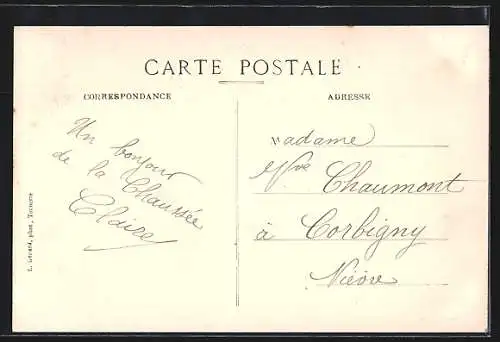 CARTE POSTALE
CORRESPONDANCE
Un bonjour
de la Chaussée
Claire
ADRESSE
Madame
Vve Chaumont
à Corbigny
Nièvre
phot., Tonnerre